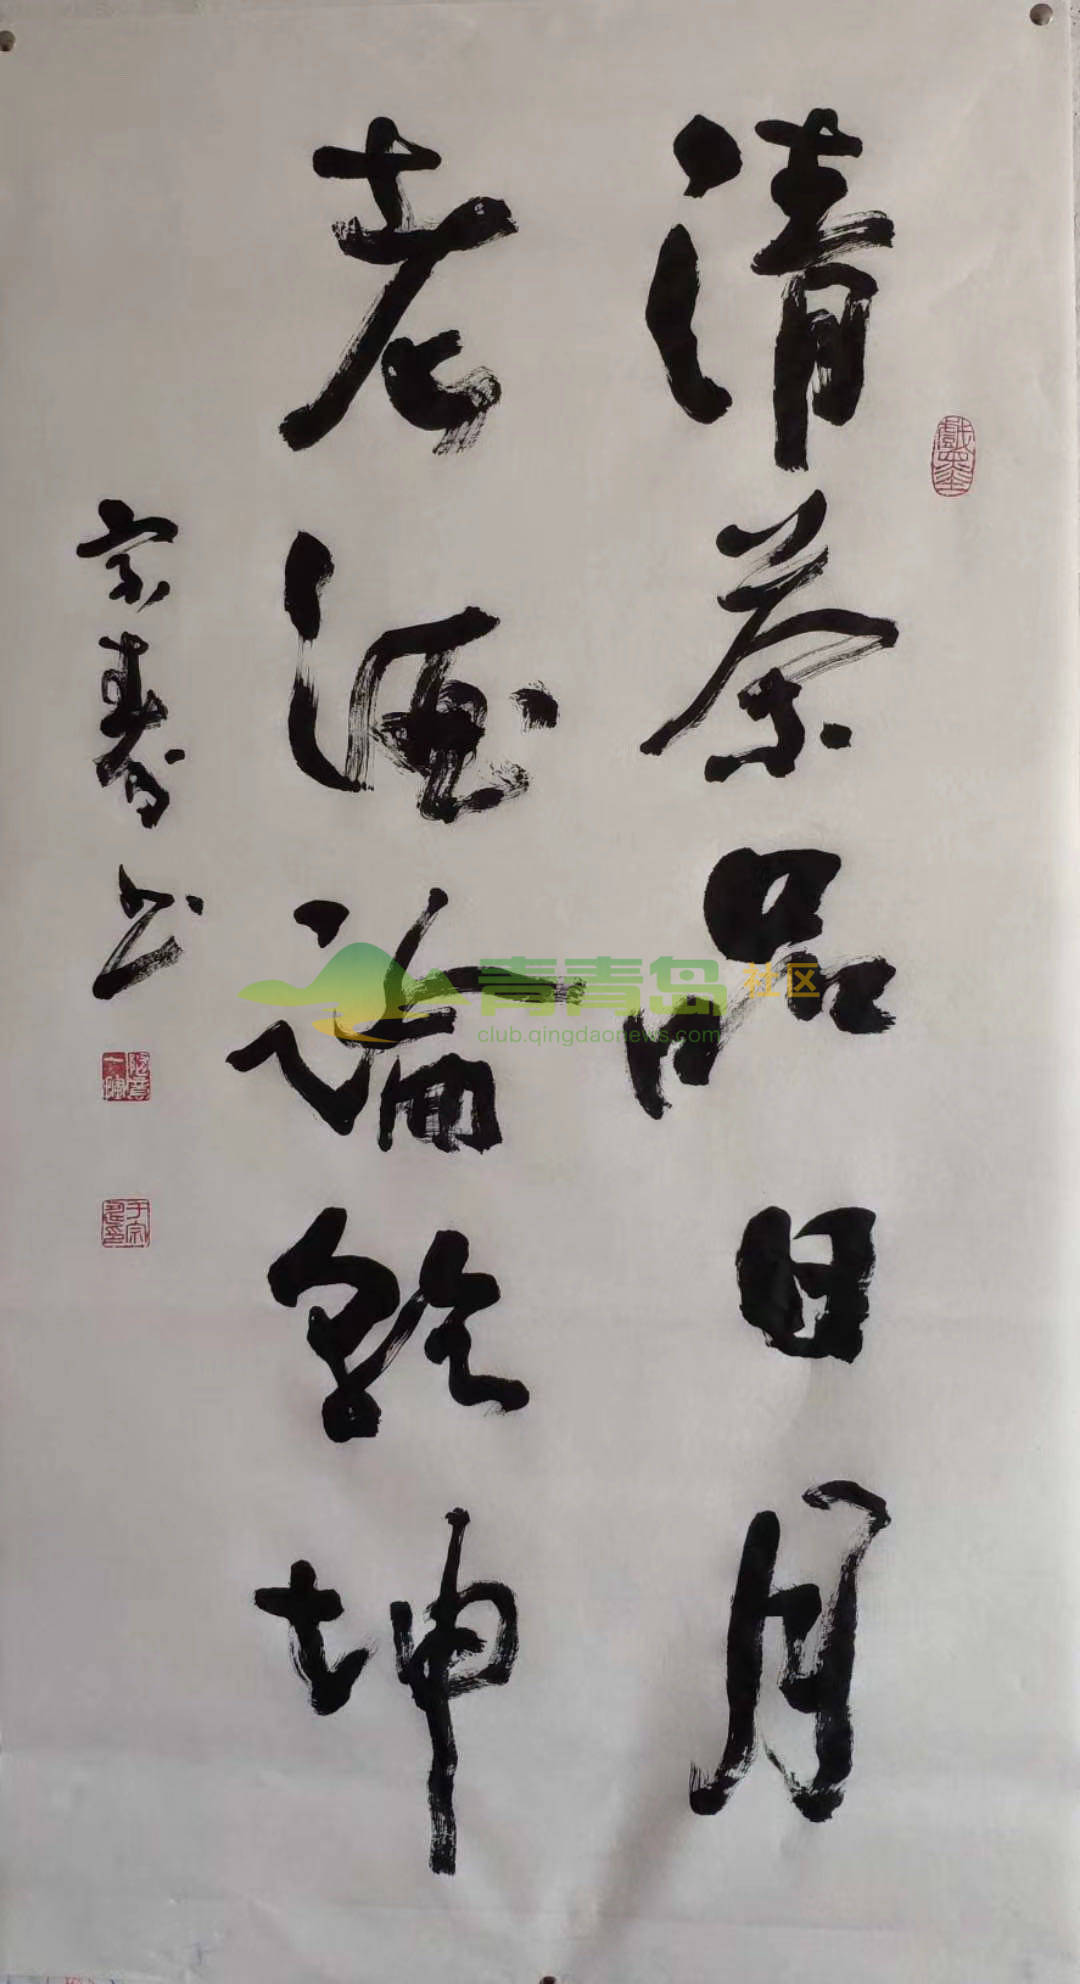 清茶品日月
老酒論乾坤
宗壽书
戲墨
于宗
青青岛社区
club.qingdaonews.com